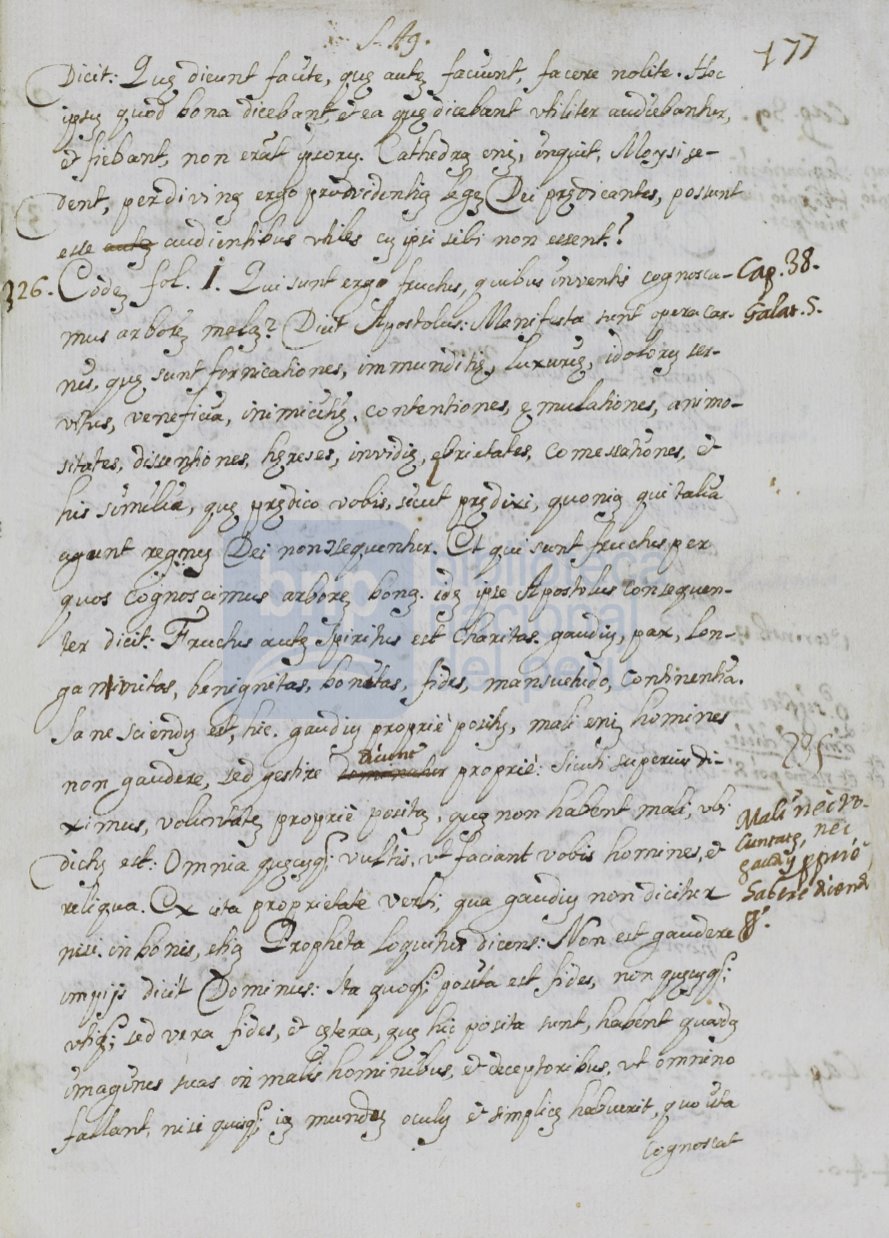 S. Ag.
177
Dicit: Quę dicunt facite, quę autę faciunt, facere nolite. Hoc
ipsę quod bona dicebant, et ea quę dicebant vtiliter audiebantur,
et fiebant, non erat ipsorę. Cathedrę enį, inquit, Moysi se-
dent, per diving ergo providentię legę Dei prędicantes, possunt
esse autę audientibus vtiles cę ipsi sibi non essent?
326. Eodę fol. 1. Qui sunt ergo fructus, quibus inventis cognosca-
Cap. 38.
mus arborę malę? Dicit Apostolus: Manifesta sunt opera car-
Galat. 5.
nis, quę sunt fornicationes, immunditię, luxurię, idolorę ser-
vitus, veneficia, inimicitię, contentiones, ęmulationes, animo-
sitates, dissentiones, hęreses, invidię, ebrietates, comessationes, et
his similia, quę prędico vobis, sicut prędixi, quonię qui talia
agunt regnę Dei non sequentur. Et qui sunt fructus per
quos cognoscimus arborę bonę. idę ipse Apostolus consequen-
ter dicit: Fructus autę Spiritus est charitas. gaudię, pax, lon-
ganimitas, benignitas, bonitas, fides, mansuetudo, continentia.
Sane sciendę est, hic. gaudię propriè positę, mali enį homines
non gaudere, sed gestire dicunt propriè: Sicuti superius di-
ximus, voluntatę propriè positę, quę non habent mali, vbi
Mali nec vo-
luntatę, nec
gaudię ppriè
habere dicend
dictę est: Omnia quęcęq; vultis, vt faciant vobis homines, et
reliqua. Ex ista proprietate verbi, qua gaudię non dicitur
nisi in bonis, etię Propheta loquitur dicens: Non est gaudere
impijs dicit Dominus: Ita quoq; posita est fides, non quęcęq;
vtiq; sed vera fides, et cętera, quę hic posita sunt, habent quadę
imagines suas in malis hominibus, et deceptoribus, vt omnino
fallant, nisi quisq; ię mundę oculę et simplicę habuerit, quo ista
cognoscat